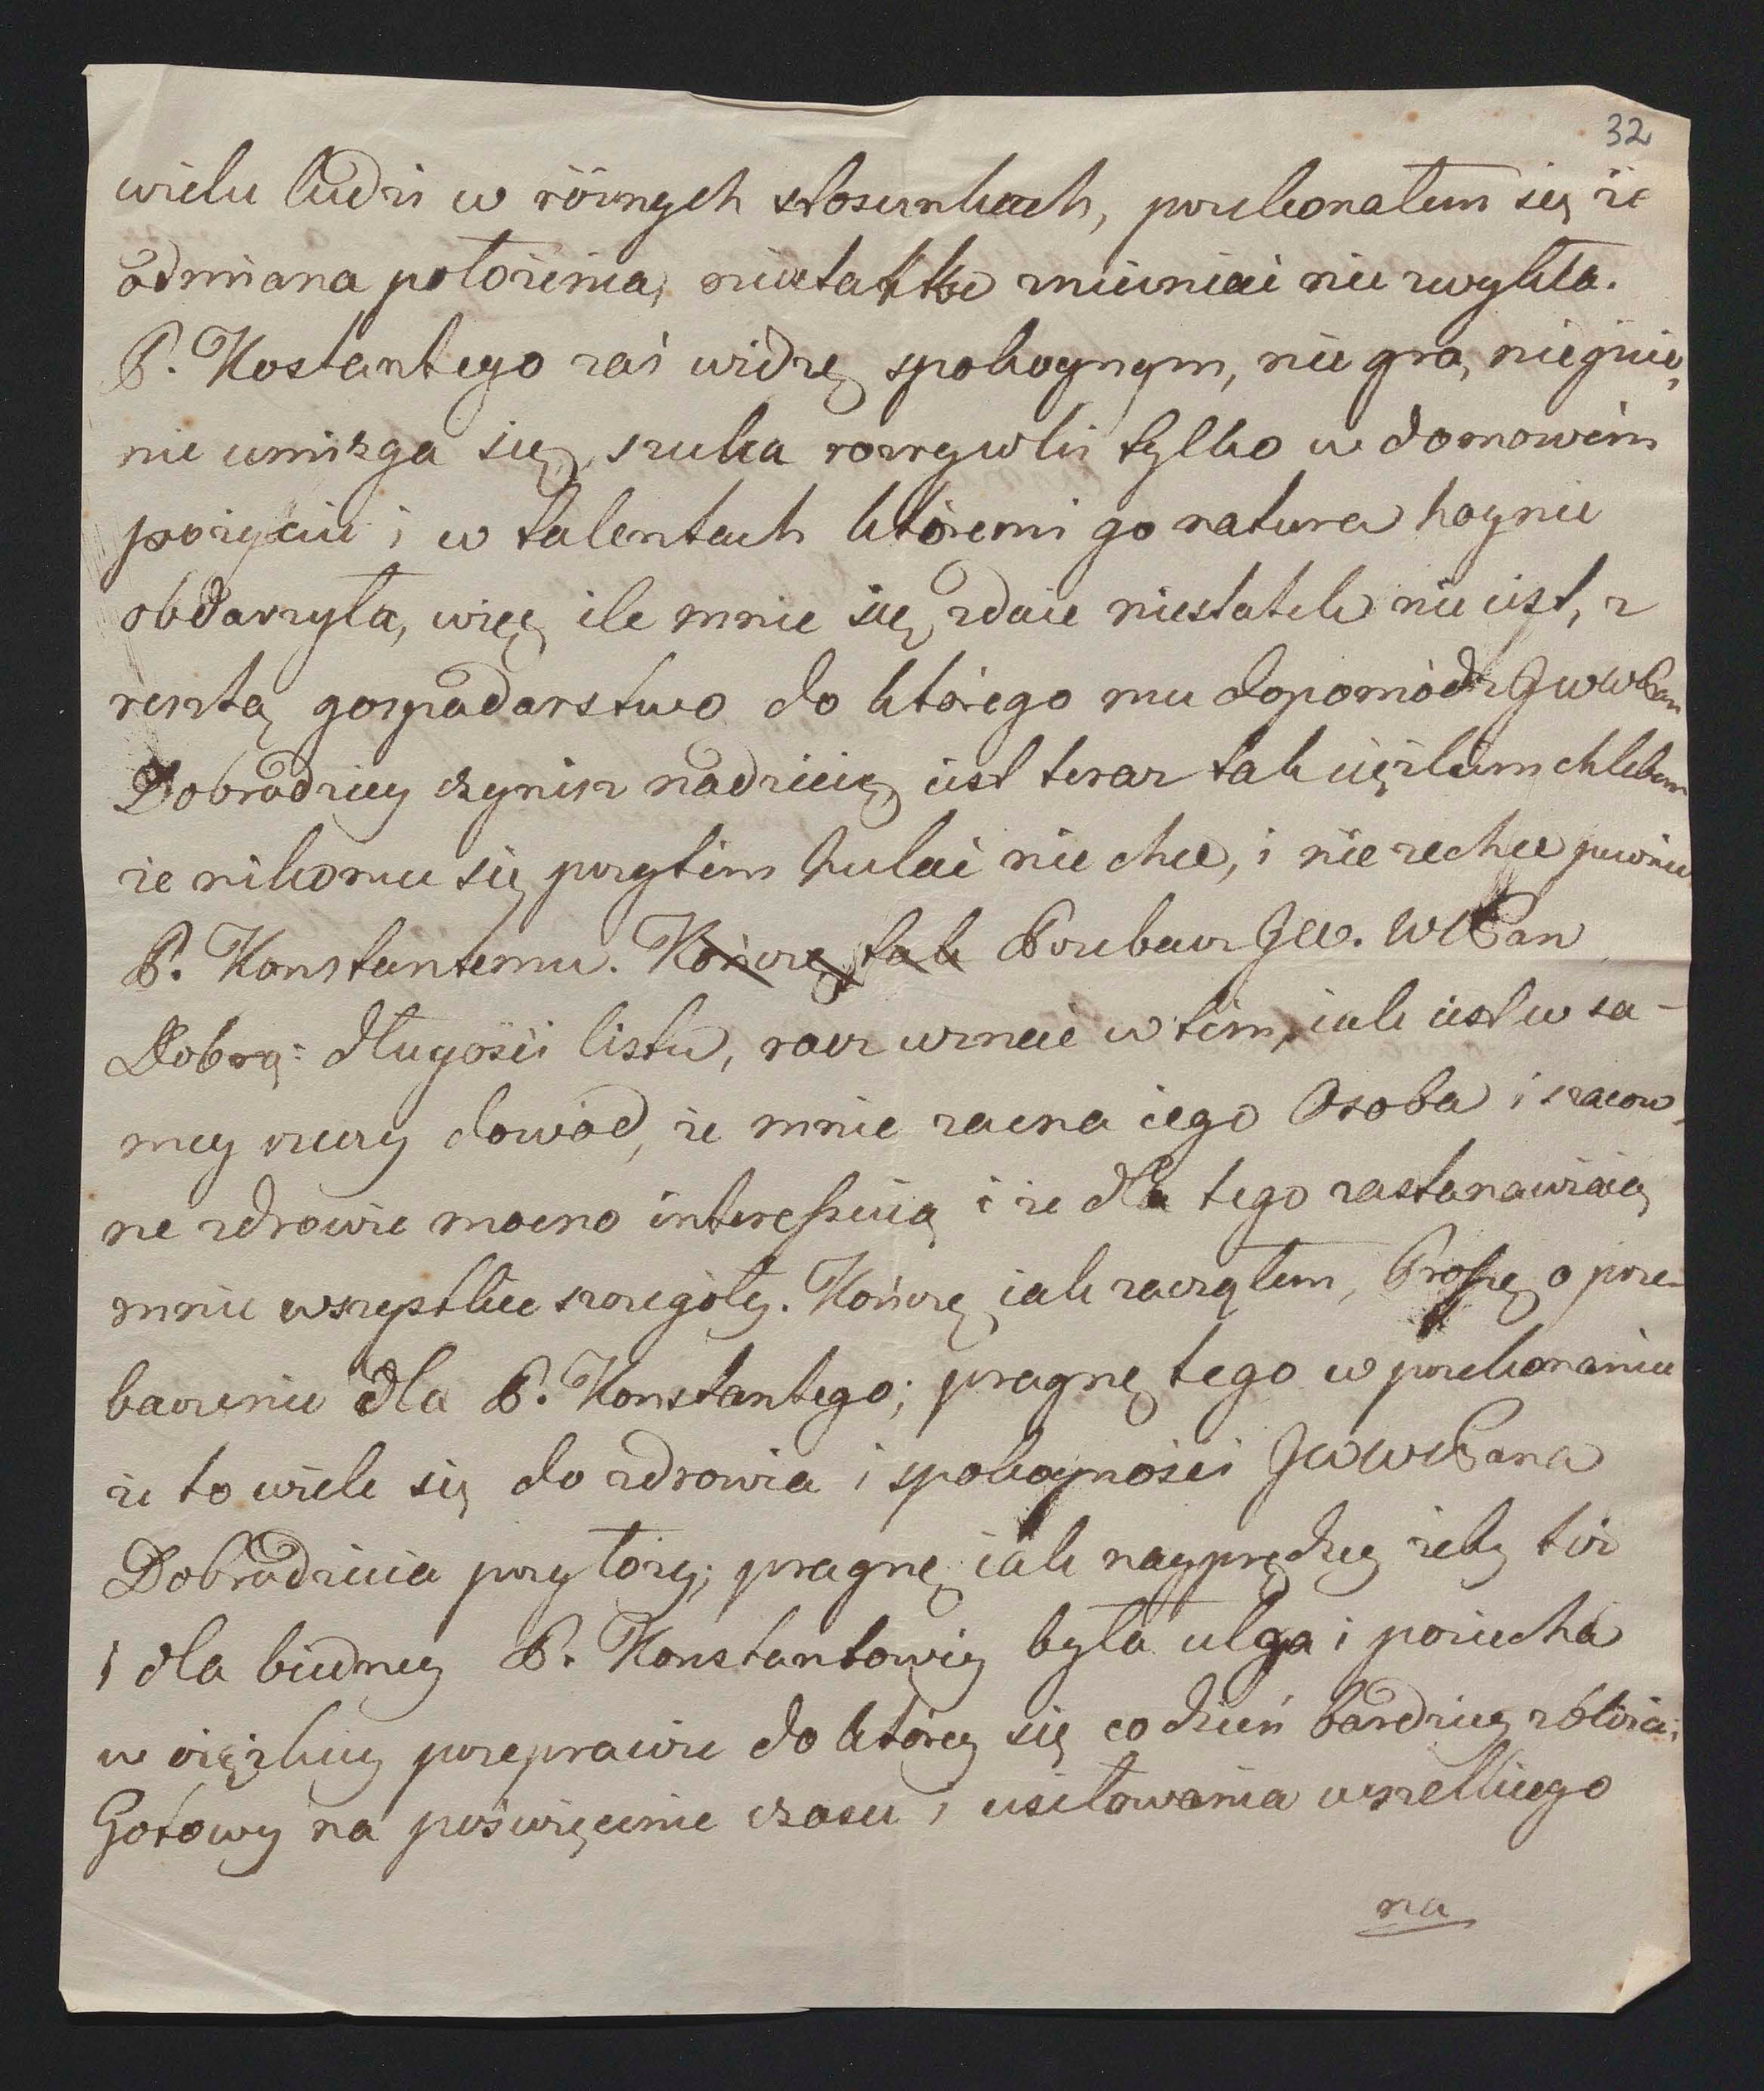 32
wielu ludzi w różnych stosunkach, przekonałem się że
odmiana położenia, niestatku zmieniać nie zwykła.
P. Kostantego zaś widzę spokoynym, nie gra, nie pije,
nie umizga się, szuka rozrywki tylko w domowém
pożyciu i w talentach któremi go natura hoynie
obdarzyła, więc ile mnie się zdaie niestatek nie iest, z
resztą gospodarstwo do którego mu dopomódz JWWPan
Dobrodziey czynisz nadzieię, iest teraz tak ciężkim chlebem
że nikomu się przytém hulać nie chce, i nie zechce pewnie
P. Konstantemu. Kończę tak Przebacz JW. WPan
Dobrą: długości listu, racz uznać w tém, iak iest w sa-
mey rzeczy dowód, że mnie zacna iego Osoba i szacow-
ne zdrowie mocno interessuią i że dla tego zastanawiaią
mnie wszystkie szczegóły. Kończę iak zacząłem, Proszę o prze-
baczenie dla P. Konstantego; pragnę tego w przekonaniu
że to wiele się do zdrowia i spokoyności JWWPana
Dobrodzieia przyłoży; pragnę iak nayprędzey żeby też
i dla biedney P. Konstantowey była ulga i pociecha
w ciężkiey przeprawie do którey się co dzień bardziey zbliża;
Gotowy na poświęcenie czasu i usiłowania wszelkiego
na